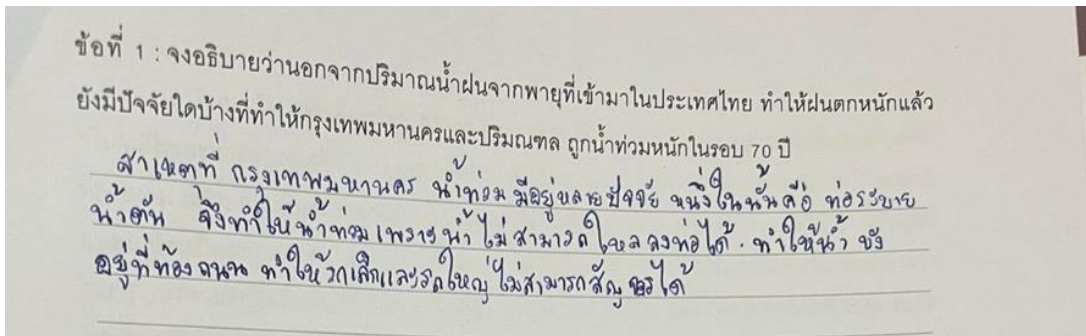 ข้อที่ 1 : จงอธิบายว่านอกจากปริมาณน้ำฝนจากพายุที่เข้ามาในประเทศไทย ทำให้ฝนตกหนักแล้ว
ยังมีปัจจัยใดบ้างที่ทำให้กรุงเทพมหานครและปริมณฑล ถูกน้ำท่วมหนักในรอบ 70 ปี
สาเหตุที่ กรุงเทพมหานคร น้ำท่วม มีอยู่หลายปัจจัย หนึ่งในนั้นคือ ท่อระบาย
น้ำตัน จึงทำให้น้ำท่วม เพราะน้ำไม่สามารถไหลลงท่อได้. ทำให้น้ำ ขัง
อยู่ที่ท้องถนน ทำให้รถเล็กและรถใหญ่ไม่สามารถสัญจรได้